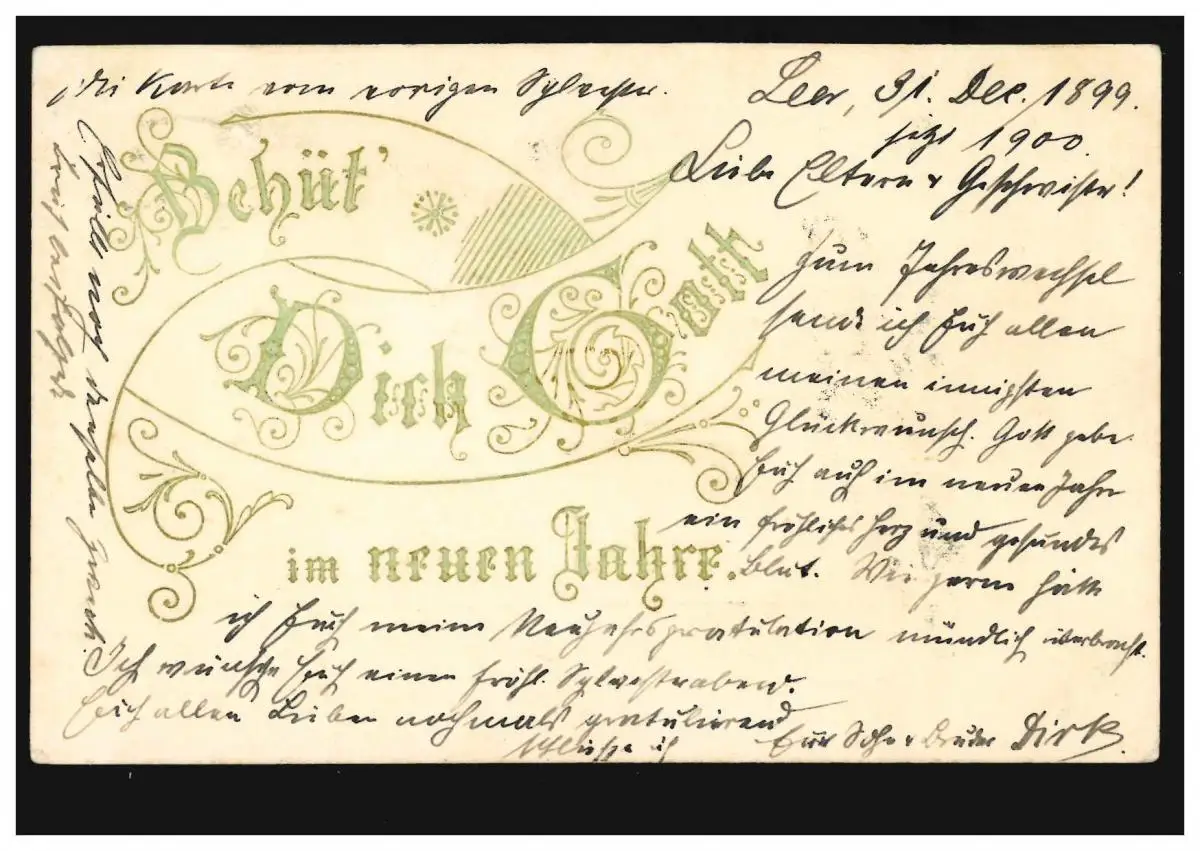 die Karte vom vorigen Sylvester.
Leer, 31. Dec. 1899.
jetzt 1900.
Liebe Eltern & Geschwister!
Behüt'
Dich Gott
im neuen Jahre.
Zum Jahreswechsel
sende ich Euch allen
meinen innigsten
Glückwunsch. Gott gebe
Euch auch im neuen Jahr
ein fröhliches Herz und gesundes
Blut. Wie gern hätte
ich Euch meine Neujahrsgratulation mündlich überbracht.
Ich wünsche Euch einen fröhl. Sylvesterabend.
Euch allen Lieben nochmals gratulierend
schließe ich
Euer Sohn & Bruder Dirk.
noch denselben Zweck.